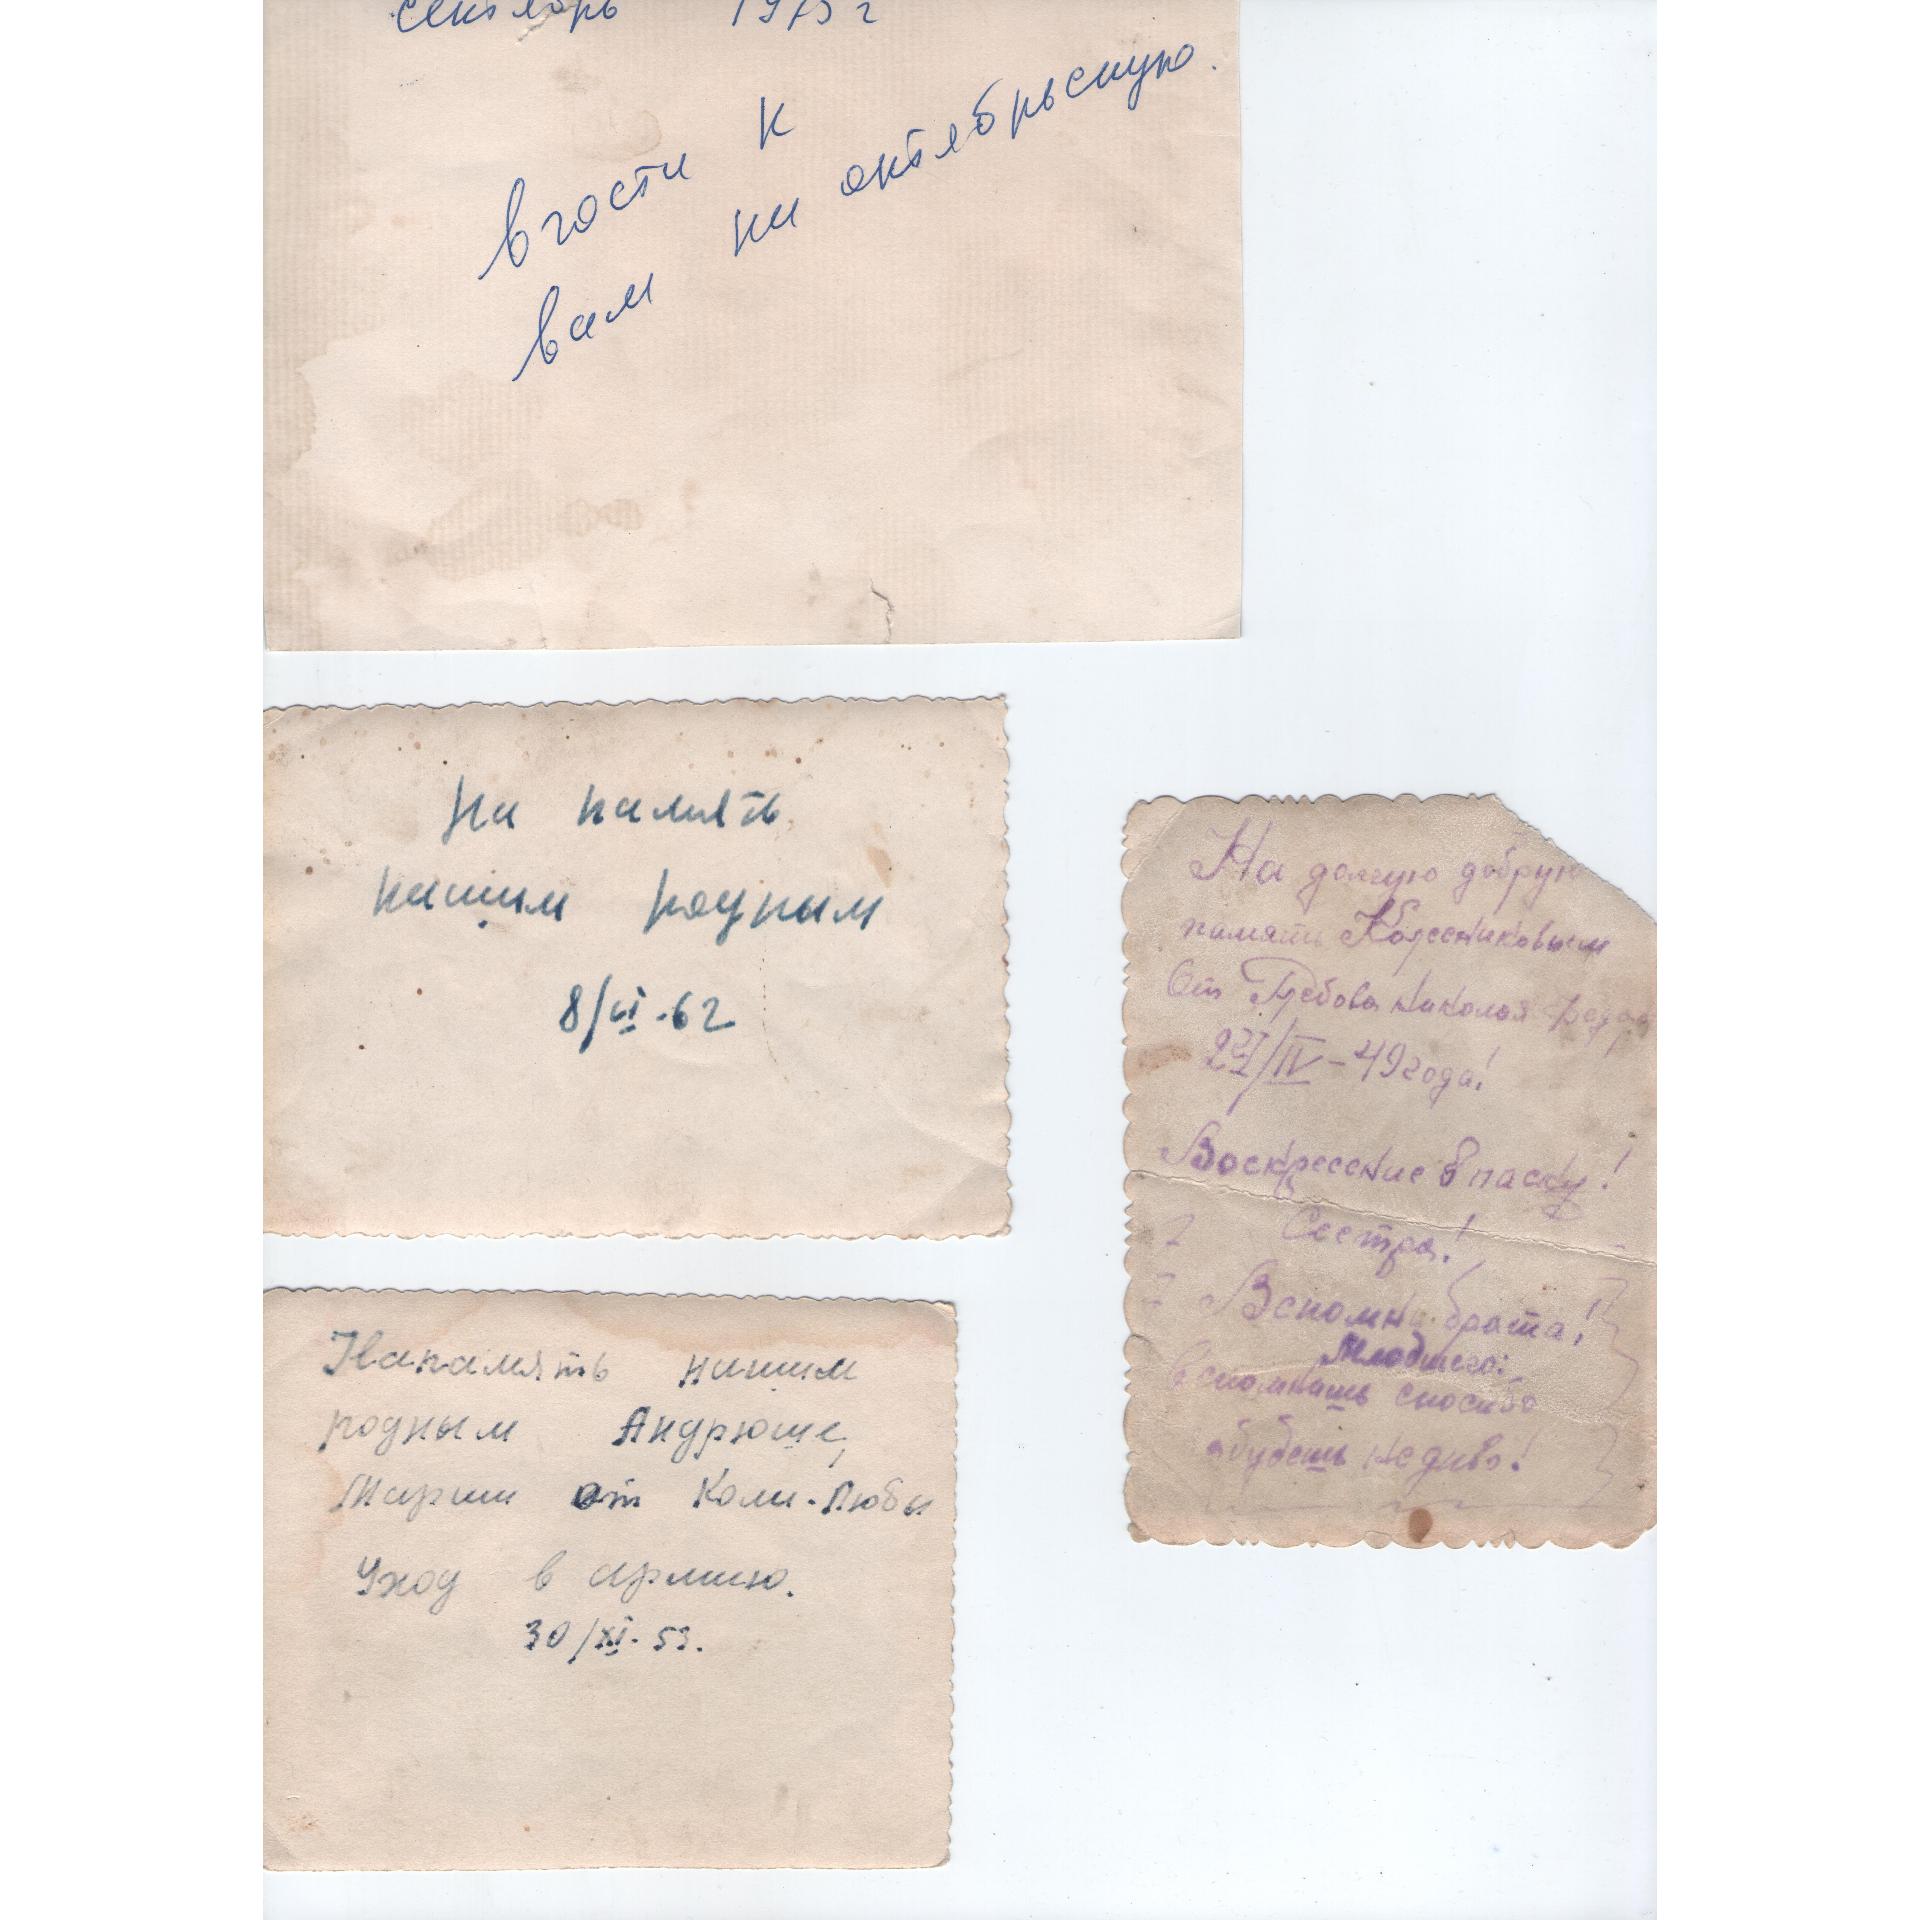 сентябрь 1975 г
в гости к
вам на октябрьскую.
на память
нашим родным
8/VI-62
На память нашим
родным Андрюше,
Марии от Коли-Любы
Уход в армию.
30/XI-53.
На долгую добрую
память Колесниковым
От Николая
/IV-49 года!
Воскресение в паску!
Сестра!
Вспомни брата!
Младшего:
Вспомнишь спосибо
збудешь не диво!